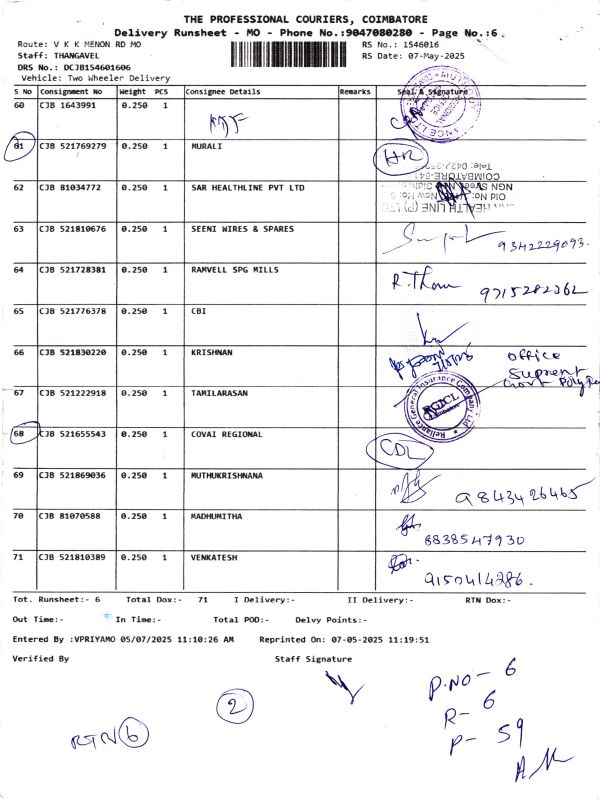 THE PROFESSIONAL COURIERS, COIMBATORE
Delivery Runsheet - MO - Phone No.:9047080280 - Page No.:6
Route: V K K MENON RD MO RS No.: 1546016
Staff: THANGAVEL RS Date: 07-May-2025
DRS No.: DCJB154601606
Vehicle: Two Wheeler Delivery
S No Consignment No Weight PCS Consignee Details Remarks Seal & Signature
60 CJB 1643991 0.250 1
61 CJB 521769279 0.250 1 MURALI HR
Tele: 0422-
COIMBATORE-641
62 CJB 81034772 0.250 1 SAR HEALTHLINE PVT LTD
NGN Street
Old No: New No:
HEALTH LINE (P) LTD
63 CJB 521810676 0.250 1 SEENI WIRES & SPARES 9342229093.
64 CJB 521728381 0.250 1 RAMVELL SPG MILLS R. Thom 9715282362
65 CJB 521776378 0.250 1 CBI
66 CJB 521830220 0.250 1 KRISHNAN office
67 CJB 521222918 0.250 1 TAMILARASAN
Reliance General Insurance Company Ltd
RGICL
68 CJB 521655543 0.250 1 COVAI REGIONAL CDL
69 CJB 521869036 0.250 1 MUTHUKRISHNANA 9843426465
70 CJB 81070588 0.250 1 MADHUMITHA 8838547930
71 CJB 521810389 0.250 1 VENKATESH 9150414286.
Tot. Runsheet:- 6 Total Dox:- 71 I Delivery:- II Delivery:- RTN Dox:-
Out Time:- In Time:- Total POD:- Delvy Points:-
Entered By :VPRIYAMO 05/07/2025 11:10:26 AM Reprinted On: 07-05-2025 11:19:51
Verified By Staff Signature
P.NO- 6
R- 6
P- 59
2
RTN 6